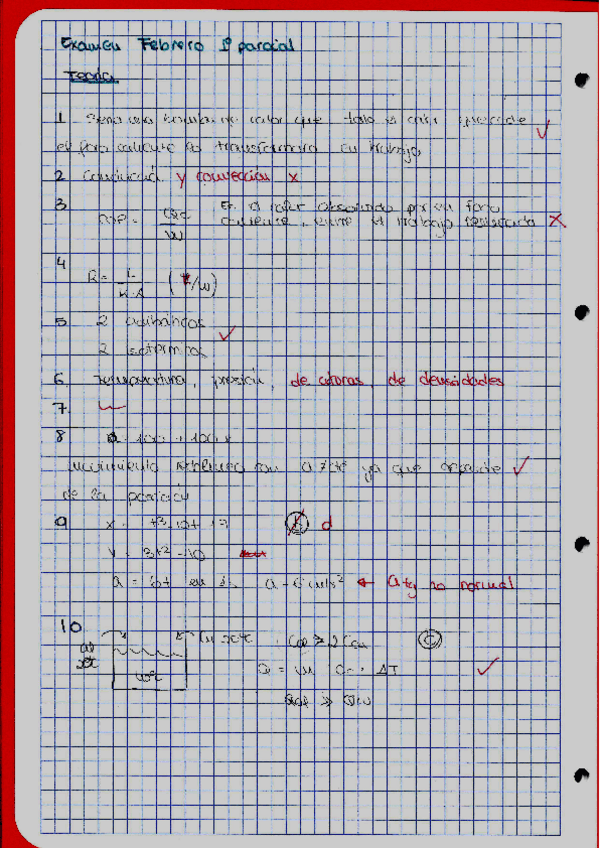 Examen Febrero 1º parcial
Teoría
1 Seria una maquina de calor que todo el calor que cede
el foco caliente lo transformara en trabajo
2 Conducción y convección x
3 Qac Es el calor absorbido por un foco
W caliente, entre el trabajo
4
R = L / K·A ( /W)
5. 2 adiabáticos
2 isotermos
6. Temperatura, presión, de alturas, de densidades
7.
8 a = 100 + 100x
movimiento rectilineo con a ≠ cte ya que depende
de la posición
9 x = t³ - 10t + 17 d
v = 3t² - 10
a = 6t en a = 6 m/s² ← atg no normal
10.
Cal > 2 Ccu C
Q = m · C · ΔT